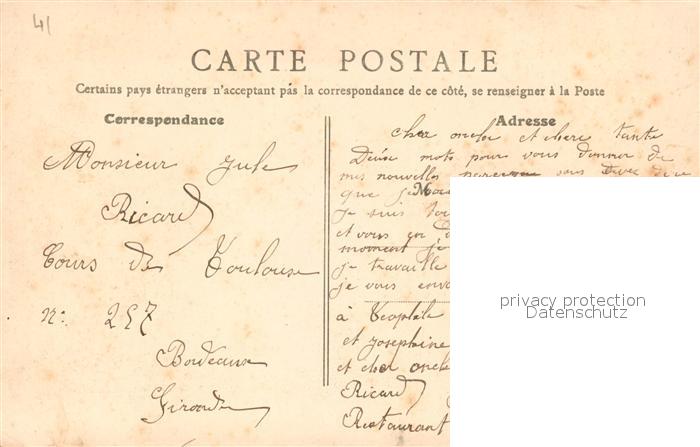 41
CARTE POSTALE
Certains pays étrangers n'acceptant pas la correspondance de ce côté, se renseigner à la Poste
Correspondance
Monsieur Jule
Ricard
Cours de Toulouse
N: 257
Bordeaux
Gironde
Adresse
cher oncle et chere tante
Deuse mots pour vous donner de
mes nouvelles
que je
je suis
et vous
moment je
je travaille
je vous
à
et Josephine
et cher oncle
Ricard
Restaurant
privacy protection
Datenschutz